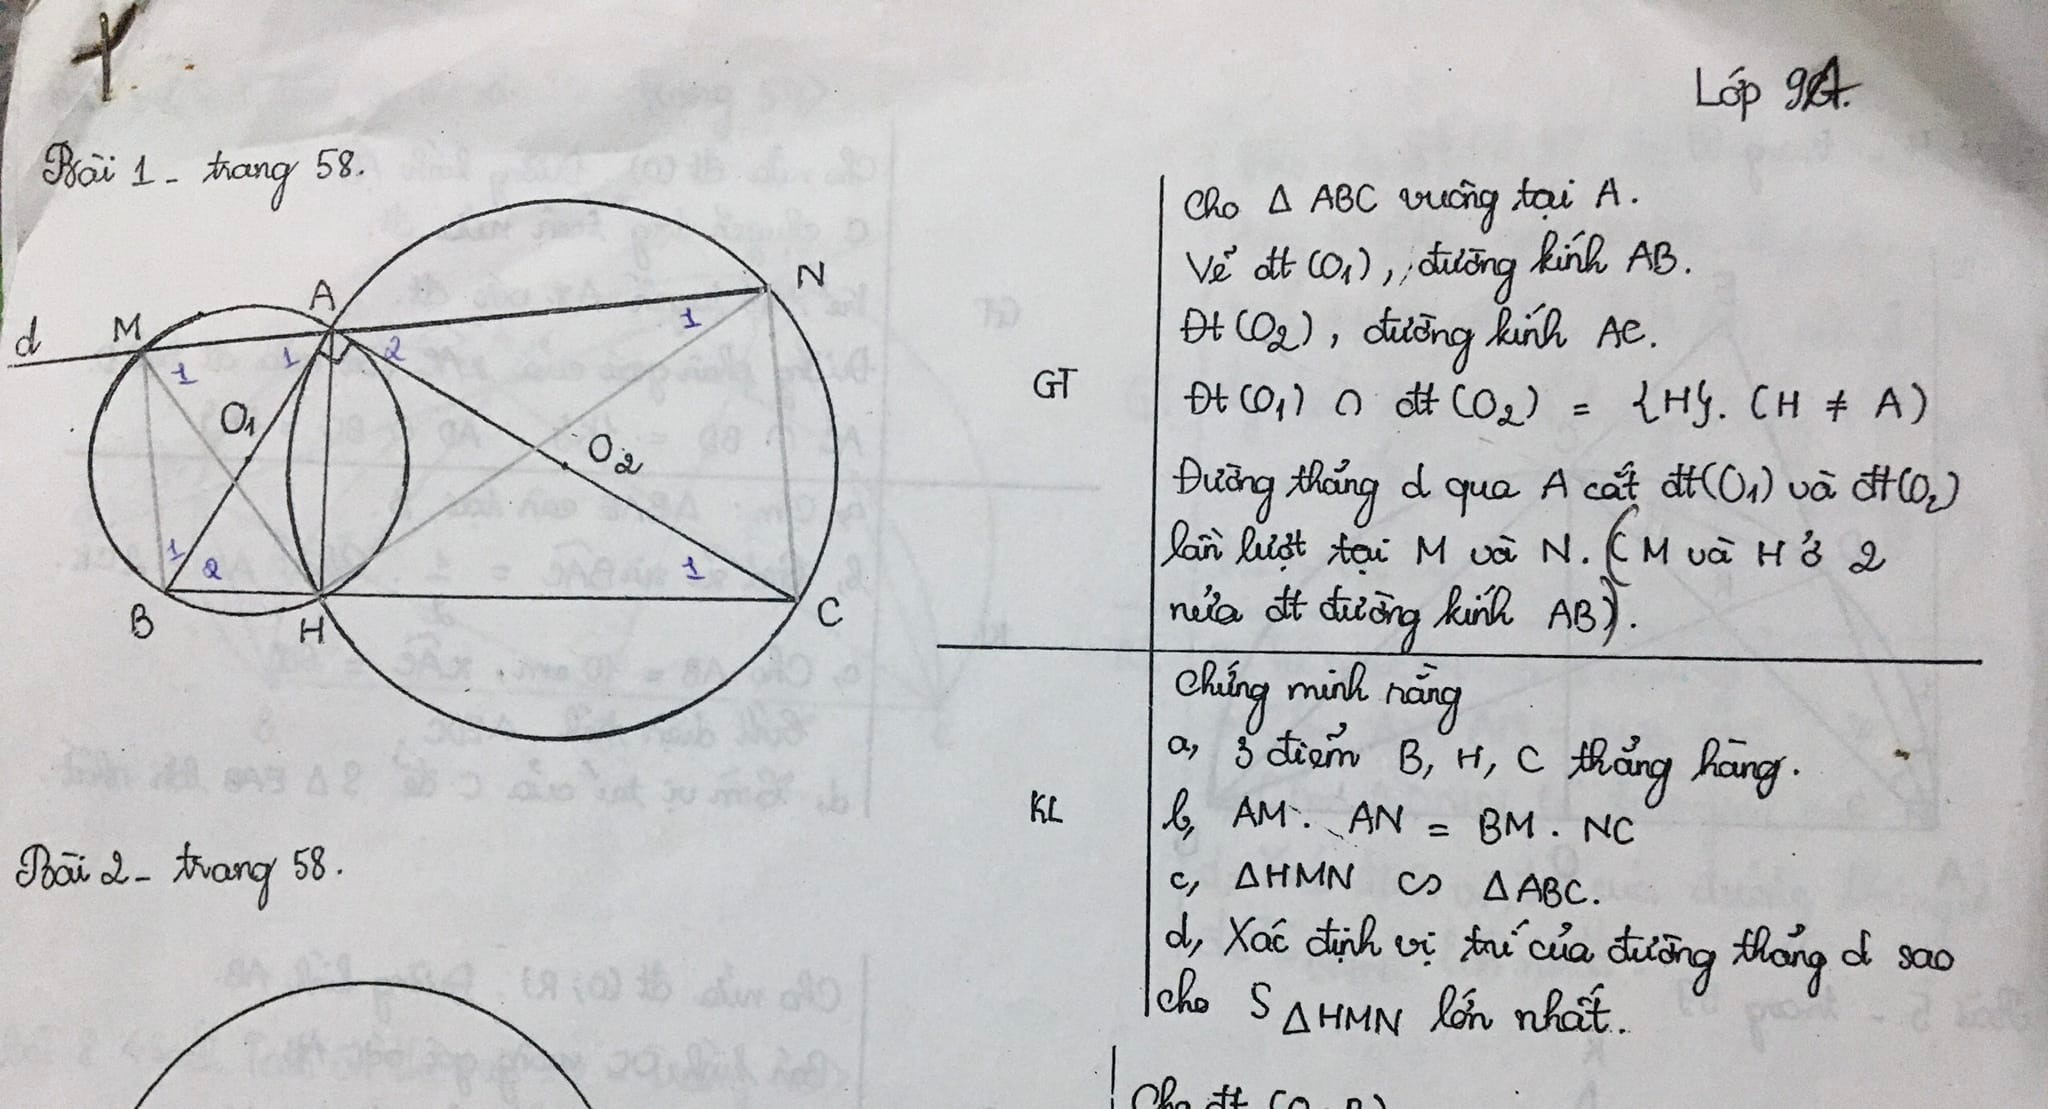 Lớp 9A.
Bài 1 - trang 58.
A
N
M
d
1
1
2
1
O₁
O₂
1
2
1
B
H
C
GT
Cho Δ ABC vuông tại A.
Vẽ đt (O₁), đường kính AB.
Đt (O₂), đường kính AC.
Đt (O₁) ∩ đt (O₂) = {H}. (H ≠ A)
Đường thẳng d qua A cắt đt(O₁) và đt(O₂)
lần lượt tại M và N. (M và H ở 2
nửa đt đường kính AB).
KL
Chứng minh rằng
a, 3 điểm B, H, C thẳng hàng.
b, AM . AN = BM . NC
c, ΔHMN ∽ ΔABC.
d, Xác định vị trí của đường thẳng d sao
cho S ΔHMN lớn nhất.
Bài 2 - trang 58.
Cho đt